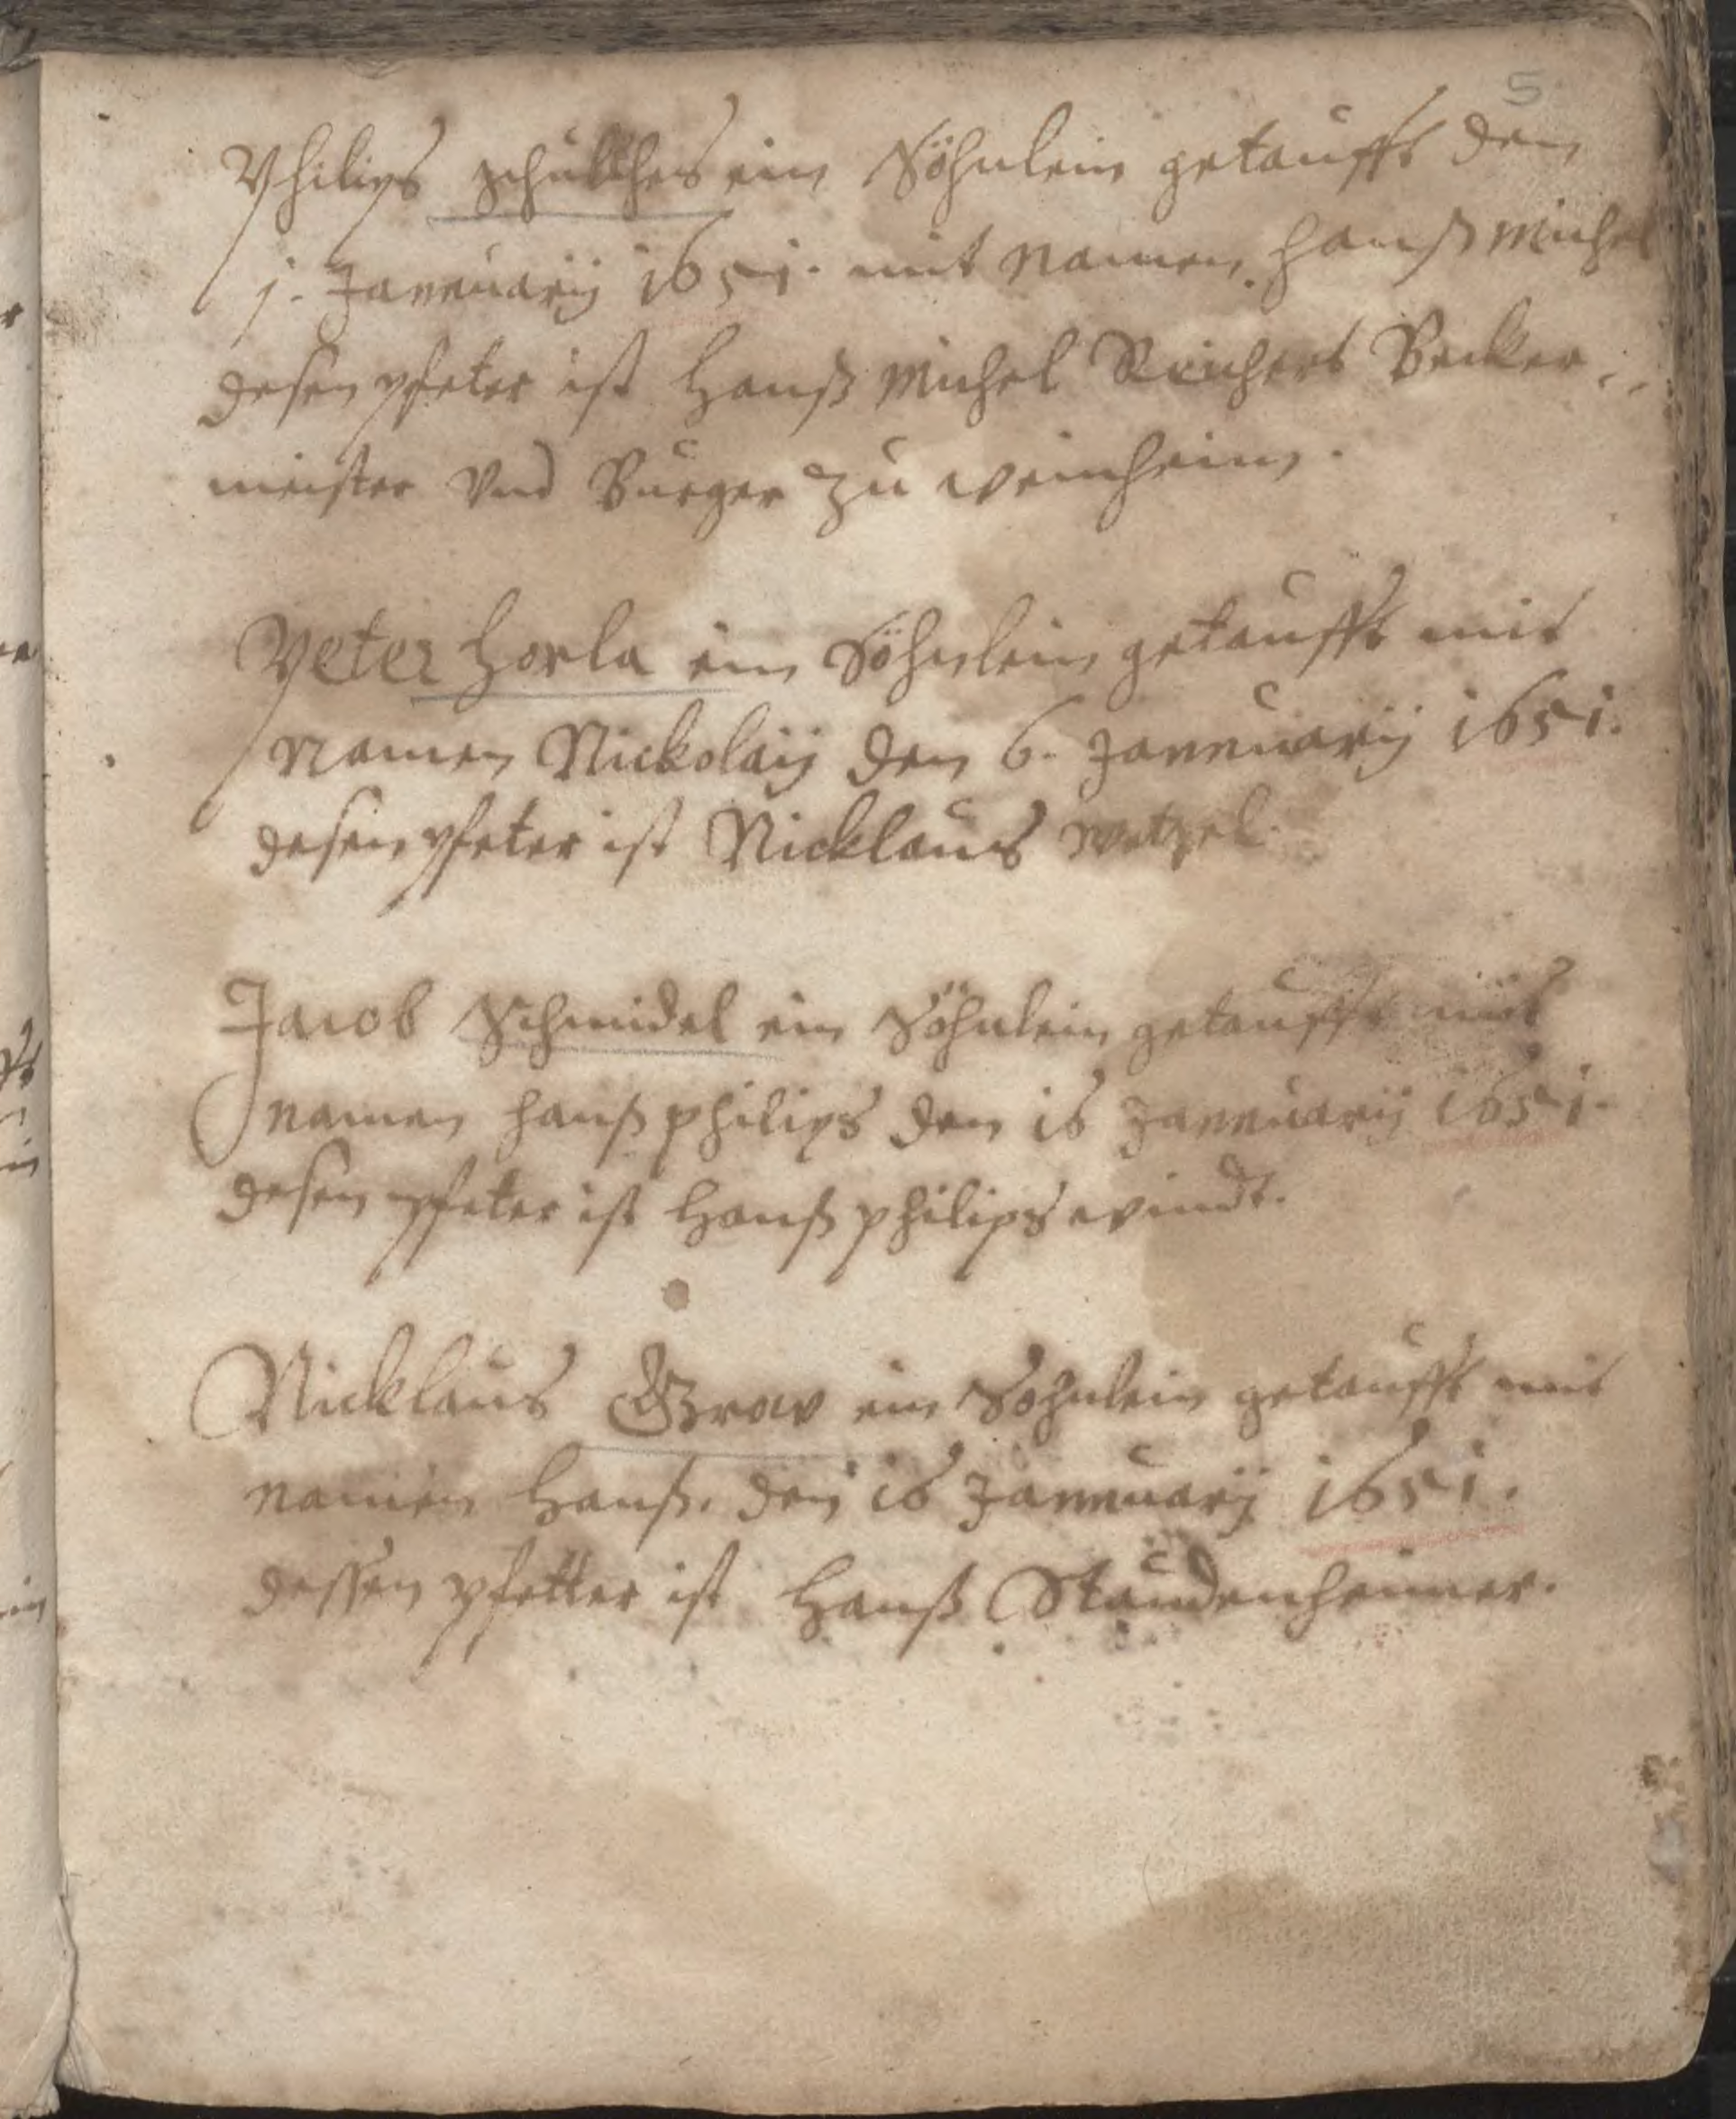 5
Philips schulthes ein Söhnlein getaufft den
j. Jannuarij 1651. mit namen hanß Michel
desen pfeter ist Hanß Michel Reichert Becker
meister Vnd Burger zu weinheim.
Peter Horla ein Söhnlein getaufft mit
namen Nickolaij den 6. Jannuarij 1651.
desen pfeter ist Nicklaus wetzel.
Jacob Schmidel ein Söhnlein getaufft mit
namen hanß philips den 16 Jannuarij 1651.
desen pfeter ist Hanß philips windt.
Nicklaus Grav ein Sohnlein getaufft mit
namen Hanß. den 16 Jannuarij 1651.
dessen pfetter ist Hanß Staudenheimer.